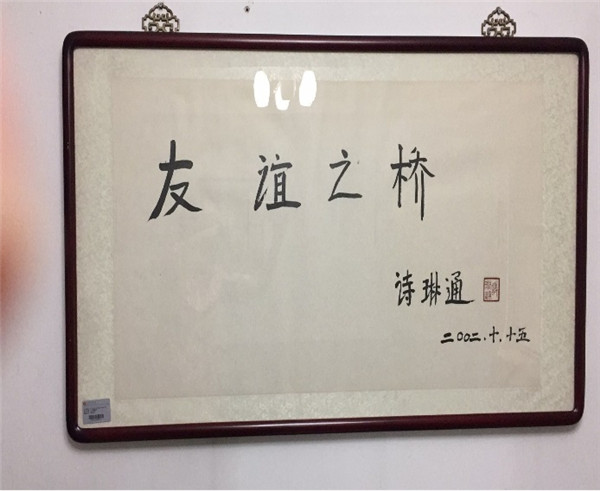 友谊之桥
诗琳通
二〇〇二.十.十五